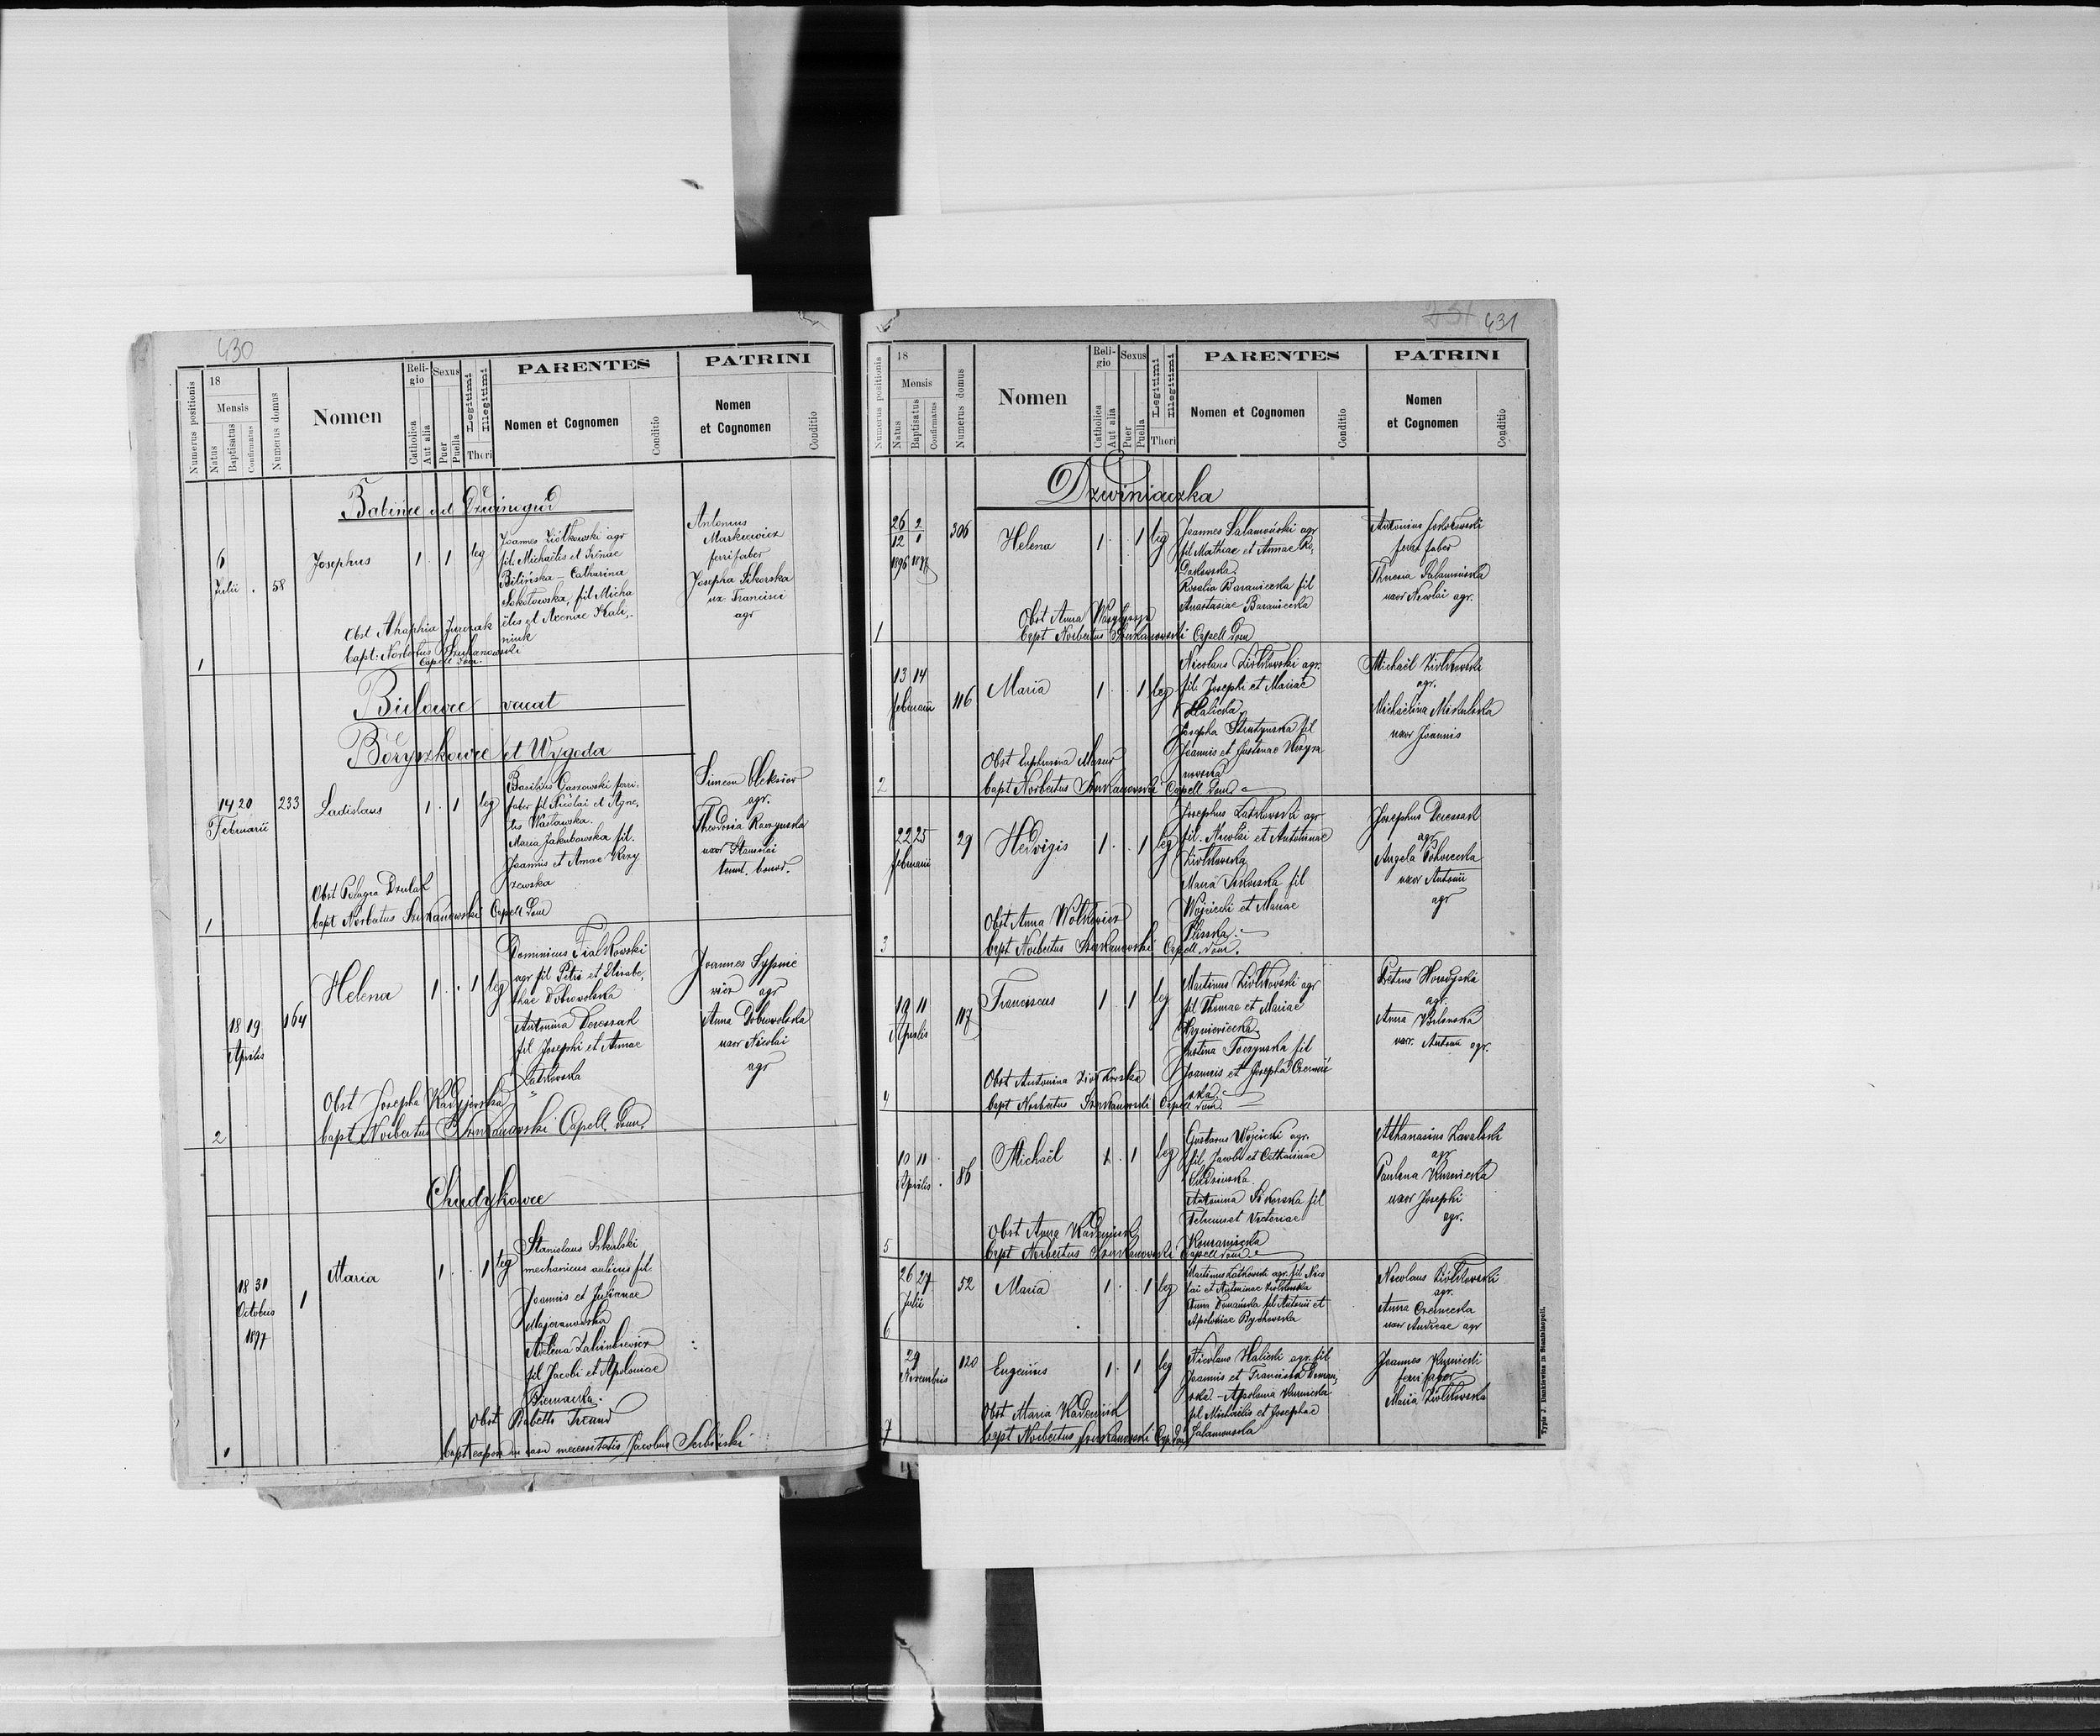 430
Numerus positionis
18
Mensis
Natus
Baptisatus
Confirmatus
Numerus domus
Nomen
Reli-
gio
Catholica
Aut alia
Sexus
Puer
Puella
Legitimi
Illegitimi
Thori
PARENTES
Nomen et Cognomen
Conditio
PATRINI
Nomen
et Cognomen
Conditio
Babińce ad Dźwinogród
6
Julii
58
Josephus
1 1 leg
Joannes Ziółkowski agr
fil. Michaëlis et Irenae
Bilińska - Catharina
Sokołowska, fil Micha
ëlis et Axeniae Kali,
niuk
Antonius
Markiewicz
ferrifaber
Josepha Sikorska
ux. Francisci
agr
Obst Ahaphia Jurczak
bapt: Norbertus Szukanowski
Capell Dom.
1
Bielowce vacat
Boryszkowce et Wygoda
14 20
Februarii
233
Ladislaus
1 1 leg
Basilius Gaszowski ferri-
faber fil Nicolai et Agne,
tis Wasławska.
Maria Jakubowska fil.
Joannis et Annae Krzy
żewska
Simeon Oleksiow
agr.
Theodosia Raczynska
uxor Stanislai
Obst Pelagia Dzulak
bapt Norbertus Szukanowski Capell Dom
1
18 19
Aprilis
164
Helena
1 1 leg
Dominicus Fialkowski
agr fil Petri et Elisabe,
thae Dobrowolska
Antonina Deressach
fil Josephi et Annae
Latkowska
Joannes Sypnie
wicz agr
Anna Dobrowolska
uxor Nicolai
agr
Obst Josepha Kadyjewska
bapt Norbertus Szukanowski Capell. Dom.
2
Chudykowce
18 31
Octobris
1897
1
Maria
1 1 leg
Stanislaus Sskulski
mechanicus aulicus fil.
Joannis et Julianae
Majeranowska
Helena Zalinkiewicz
fil Jacobi et Apoloniae
Biernacka.
Obst Babetti Freund
bapt ex aqua in casu necessitatis Jacobus Serbiński
1
431
Numerus positionis
18
Mensis
Natus
Baptisatus
Confirmatus
Numerus domus
Nomen
Reli-
gio
Catholica
Aut alia
Sexus
Puer
Puella
Legitimi
Illegitimi
Thori
PARENTES
Nomen et Cognomen
Conditio
PATRINI
Nomen
et Cognomen
Conditio
Dzwiniaczka
26 2
12 1
1896 1897
306
Helena
1 1 leg
Joannes Salamoński agr
fil Mathiae et Annae Ro,
Rosalia Baraniecka fil
Anastasiae Baraniecka
Antonius
ferri faber
Theresia Salamońska
uxor Nicolai agr.
Obst Anna
bapt Norbertus Szukanowski Capell Dom
1
13 14
februarii
116
Maria
1 1 leg
Nicolaus Ziolkowski agr.
fil. Josephi et Mariae
Halicka
Josepha Strutynska fil
Joannis et Justinae
Michaël Ziolkowski
agr.
Michaëlina Mikulska
uxor Joannis
Obst Euphrosina Mazur
bapt Norbertus Szukanowski Capell Dom
2
22 25
februarii
29
Hedvigis
1 1 leg
Josephus Latkowski agr
fil. Nicolai et Antoninae
Ziolkowska
Maria Sikorska fil
Wojciechi et Mariae
Josephus Deressach
agr
Angela
uxor Antonii
agr
Obst Anna Wolkowicz
bapt Norbertus Szukanowski Capell. Dom.
3
10 11
Aprilis
117
Franciscus
1 1 leg
Martinus Ziolkowski agr
fil Thomae et Mariae
Justina Toczynska fil
Joannis et Josepha
Petrus Horodyski
agr.
Anna Wolanska
uxor. Antonii agr.
Obst Antonina Ziolkowska
bapt Norbertus Szukanowski Capell Dom.
4
10 11
Aprilis
86
Michaël
1 1 leg
Gustavus Wojcicki agr.
fil Jacobi et Catharinae
Antonina Sikorska fil
Felicis et Victoriae
Athanasius Kowalski
agr
Paulina Kurnicka
uxor Josephi
agr.
Obst Anna Kademiuk
bapt Norbertus Szukanowski Capell Dom
5
26 27
Julii
52
Maria
1 1 leg
Martinus Latkowski agr. fil Nico
lai et Antoninae Ziolkowska
Anna Domańska fil Antonii et
Apoloniae Bychowska
Nicolaus Ziolkowski
agr.
Anna
uxor Andreae agr
6
29
Novembris
120
Eugenius
1 1 leg
Nicolaus Halicki agr. fil
Joannis et Francisca Doman,
ska - Apolonia Kurnicka
fil Michaëlis et Josephae
Salamonska
Joannes Kurnicki
ferri faber
Maria Ziolkowska
Obst Maria Kademiuk
bapt Norbertus Szukanowski Cap. Dom
7
Typis J. Dankiewicz in Stanislaopoli.